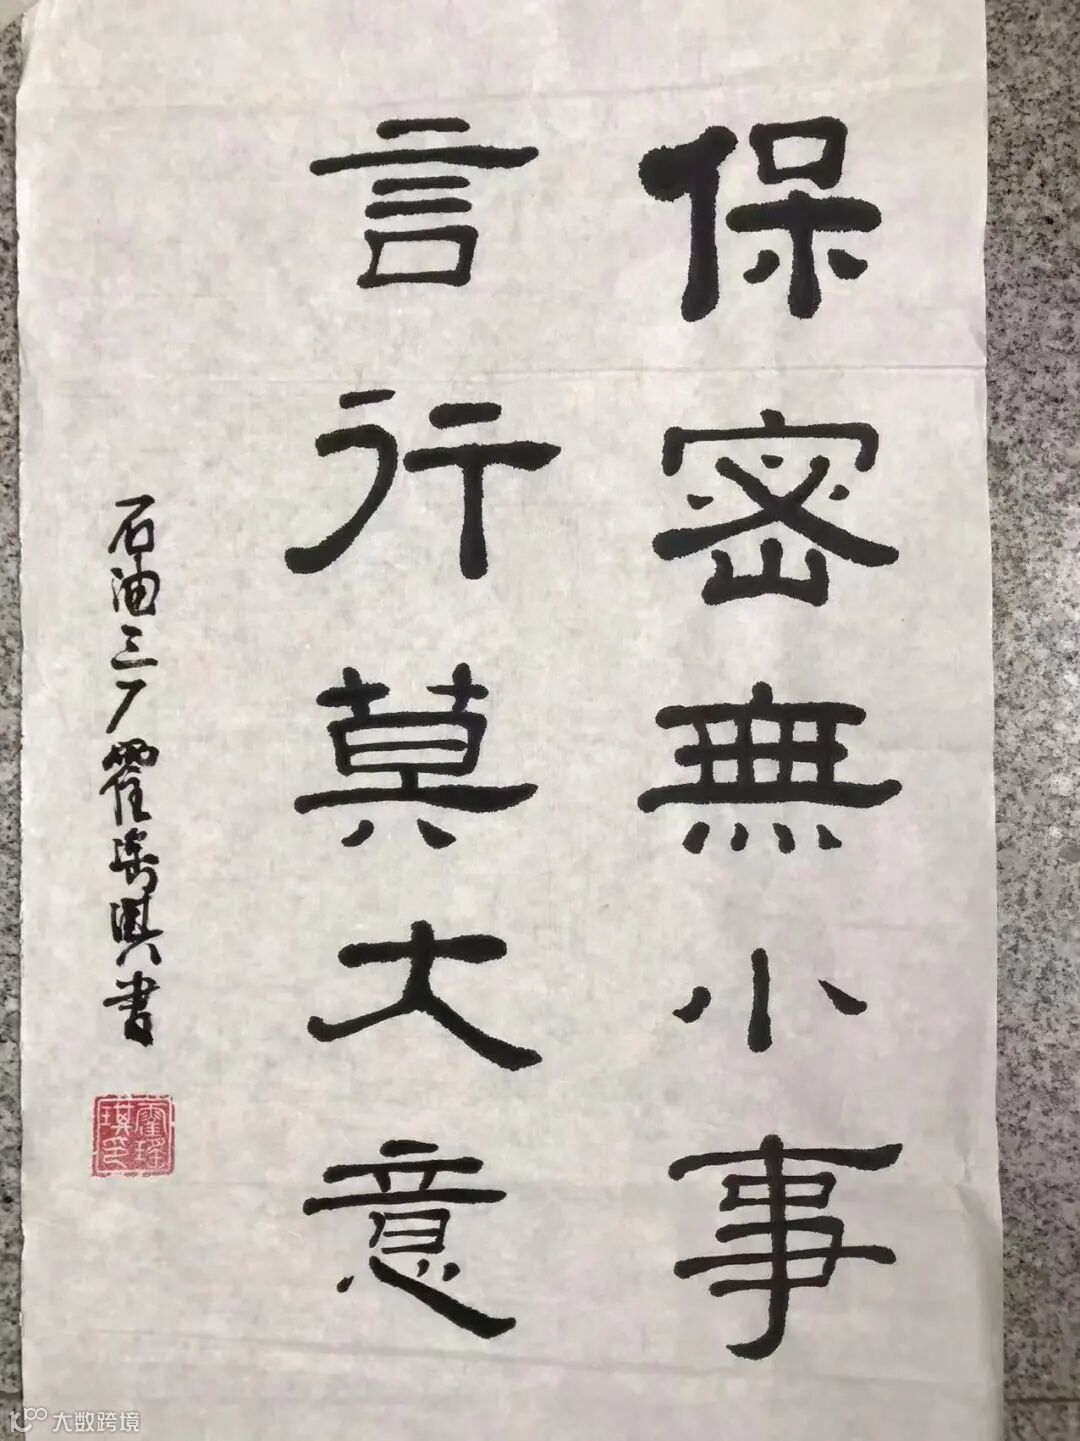 保密無小事
言行莫大意
石油三厂霍瑶琪书
霍瑶琪印
大数跨境